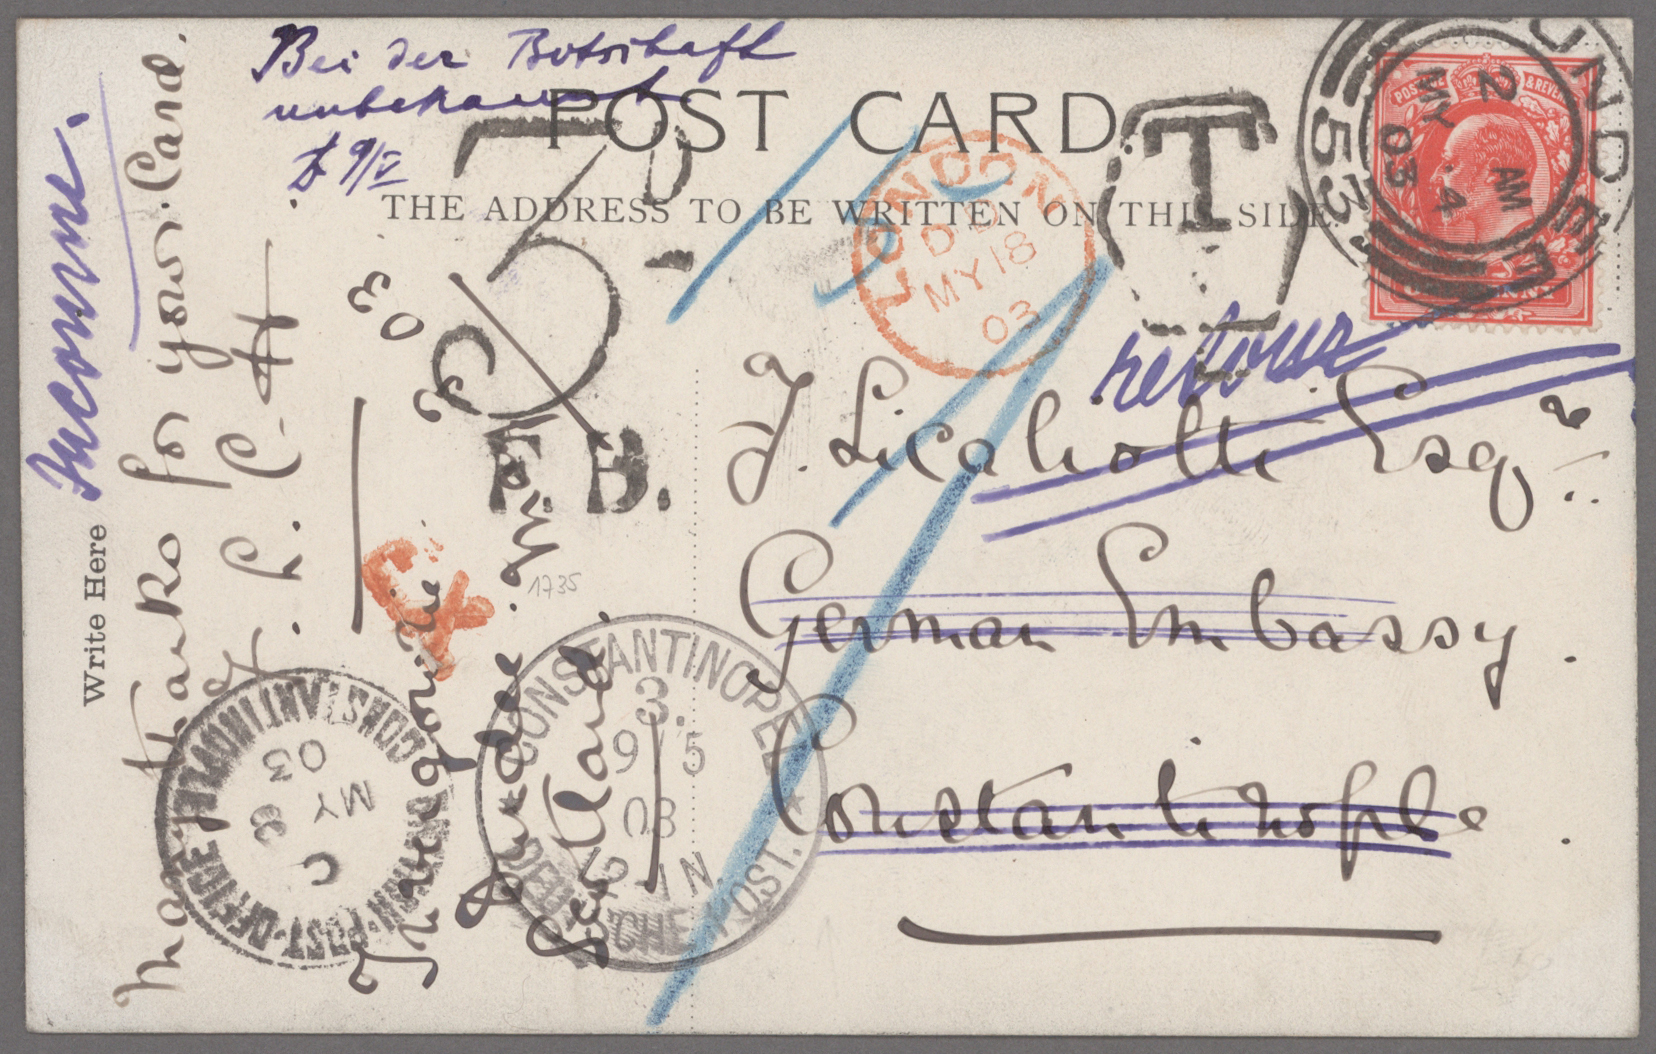 Bei der Botschaft
unbekannt
9/V
POST CARD.
THE ADDRESS TO BE WRITTEN ON THIS SIDE.
T
DUNDEE
2 AM
MY 4
03
53
POSTAGE & REVENUE
LONDON
D D
MY 18
03
3D
F.B.
retour
Inconnu.
Write Here
Many thanks for your Card.
L. C. H.
Invergowrie
Dundee
Scotland.
1735
Esqre.
German Embassy.
Constantinople.
CONSTANTINOPEL
3.
9/5
03
12-1N
DEUTSCHE POST.
BRITISH·POST·OFFICE CONSTANTINOPLE
C
MY 8
03